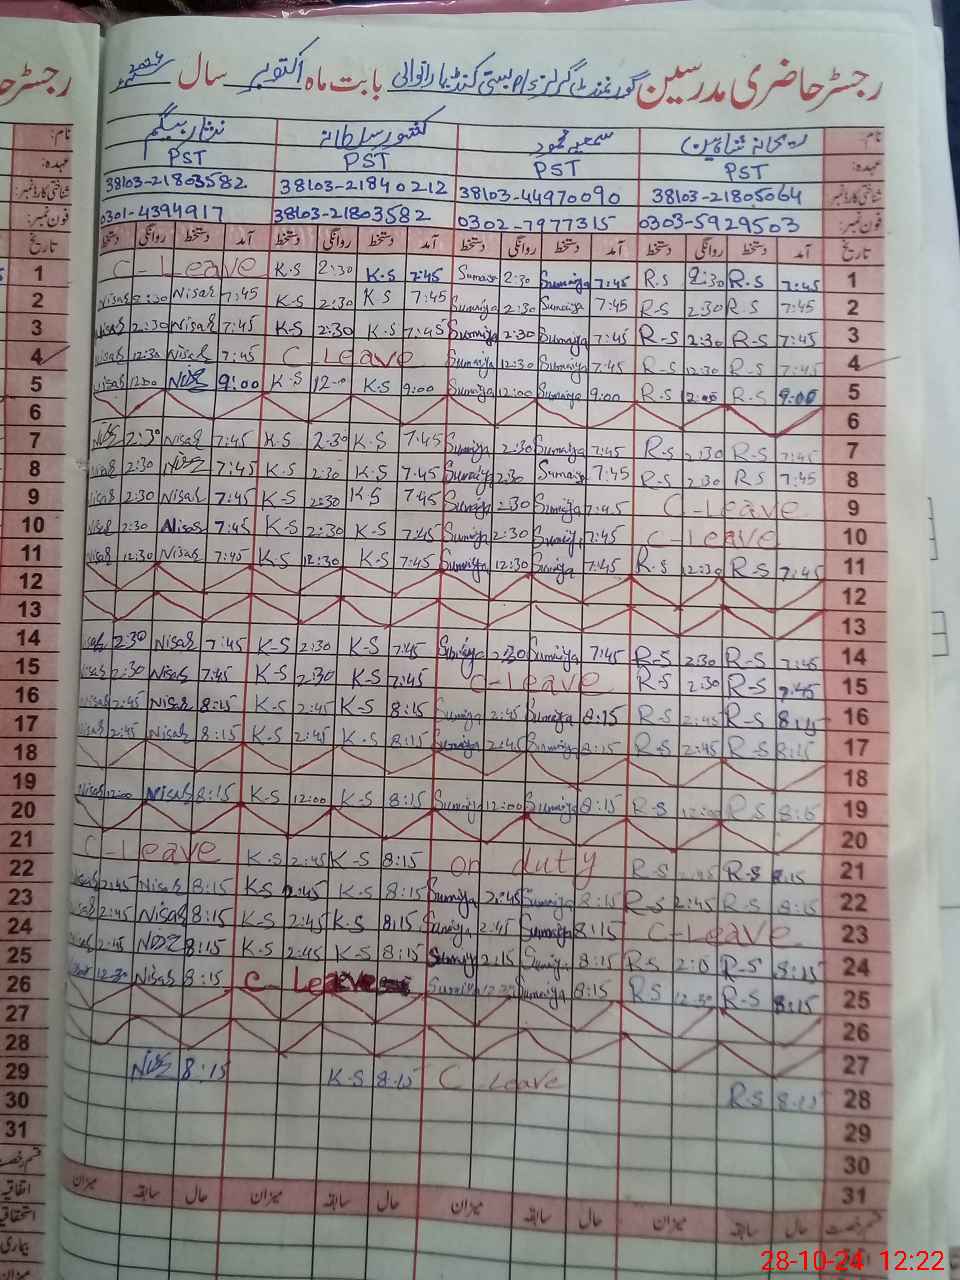 رجسٹر حاضری مدرسین گورنمنٹ گرلز بستی بابت ماہ اکتوبر سال 2024
نام:
ریحانہ شاہین
سمعیہ محمود
کشور سلطانہ
نثار بیگم
عہدہ:
PST PST PST PST
شناختی کارڈ نمبر:
38103-21805064
38103-44970090
38103-21840212
38103-21803582
فون نمبر:
0303-5929503
0302-7977315
38103-21803582
0301-4394917
تاریخ آمد دستخط روانگی دستخط آمد دستخط روانگی دستخط آمد دستخط روانگی دستخط آمد دستخط روانگی دستخط
1 C-Leave K.S 2:30 K.S 7:45 2:30 Sumaiya 7:45 R.S 2:30 R.S 7:45 1
2 Nisar 2:30 Nisar 7:45 K-S 2:30 K-S 7:45 Sumaiya 2:30 Sumaiya 7:45 R-S 2:30 R-S 7:45 2
3 Nisar 2:30 Nisar 7:45 K-S 2:30 K-S 7:45 Sumaiya 2:30 Sumaiya 7:45 R-S 2:30 R-S 7:45 3
4 Nisar 12:30 Nisar 7:45 C Leave Sumaiya 12:30 Sumaiya 7:45 R-S 12:30 R-S 7:45 4
5 Nisar 12:00 9:00 K-S K-S 9:00 Sumaiya 12:00 Sumaiya 9:00 R.S 12:00 R-S 9:00 5
6 6
7 2:30 Nisar 7:45 K-S 2:30 K-S 7:45 Sumaiya 2:30 Sumaiya 7:45 R-S 2:30 R-S 7:45 7
8 Nisar 2:30 7:45 K-S 2:30 K-S 7:45 Sumaiya 2:30 Sumaiya 7:45 R-S 2:30 R-S 7:45 8
9 Nisar 2:30 Nisar 7:45 K-S 2:30 K-S 7:45 Sumaiya 2:30 Sumaiya 7:45 C-Leave 9
10 Nisar 2:30 Nisar 7:45 K-S 2:30 K-S 7:45 Sumaiya 2:30 7:45 C-Leave 10
11 Nisar 12:30 Nisar 7:45 K-S 12:30 K-S 7:45 Sumaiya 12:30 Sumaiya 7:45 R.S 12:30 R-S 7:45 11
12 12
13 13
14 Nisar 2:30 Nisar 7:45 K-S 2:30 K-S 7:45 2:30 Sumaiya 7:45 R-S 2:30 R-S 7:45 14
15 Nisar 2:30 Nisar 7:45 K-S 2:30 K-S 7:45 C-Leave R-S 2:30 R-S 7:45 15
16 Nisar 2:45 Nisar 8:15 K-S 2:45 K-S 8:15 Sumaiya 2:45 Sumaiya 8:15 R-S 2:45 R-S 8:15 16
17 Nisar 2:45 Nisar 8:15 K-S 2:45 K-S 8:15 Sumaiya 2:45 Sumaiya 8:15 R-S 2:45 R-S 8:15 17
18 18
19 Nisar 12:00 Nisar 8:15 K-S 12:00 K-S 8:15 Sumaiya 12:00 Sumaiya 8:15 R-S 12:00 R-S 8:15 19
20 20
21 C-Leave K-S 2:45 K-S 8:15 on duty R-S 2:45 R-S 8:15 21
22 Nisar 2:45 Nisar 8:15 K-S 2:45 K-S 8:15 Sumaiya 2:45 Sumaiya 8:15 R-S 2:45 R-S 8:15 22
23 Nisar 2:45 Nisar 8:15 K-S 2:45 K-S 8:15 Sumaiya 2:45 Sumaiya 8:15 C-Leave 23
24 Nisar 2:45 8:15 K-S 2:45 K-S 8:15 2:15 8:15 R-S R-S 8:15 24
25 12:30 Nisar 8:15 C-Leave Sumaiya 12:30 Sumaiya 8:15 R-S 12:30 R-S 8:15 25
26 26
27 27
28 8:15 K-S 8:15 C-Leave R-S 8:15 28
29 29
30 30
31 31
قسم رخصت حال سابقہ میزان حال سابقہ میزان حال سابقہ میزان حال سابقہ میزان
اتفاقیہ
استحقاقیہ
بیماری
میزان
28-10-24 12:22